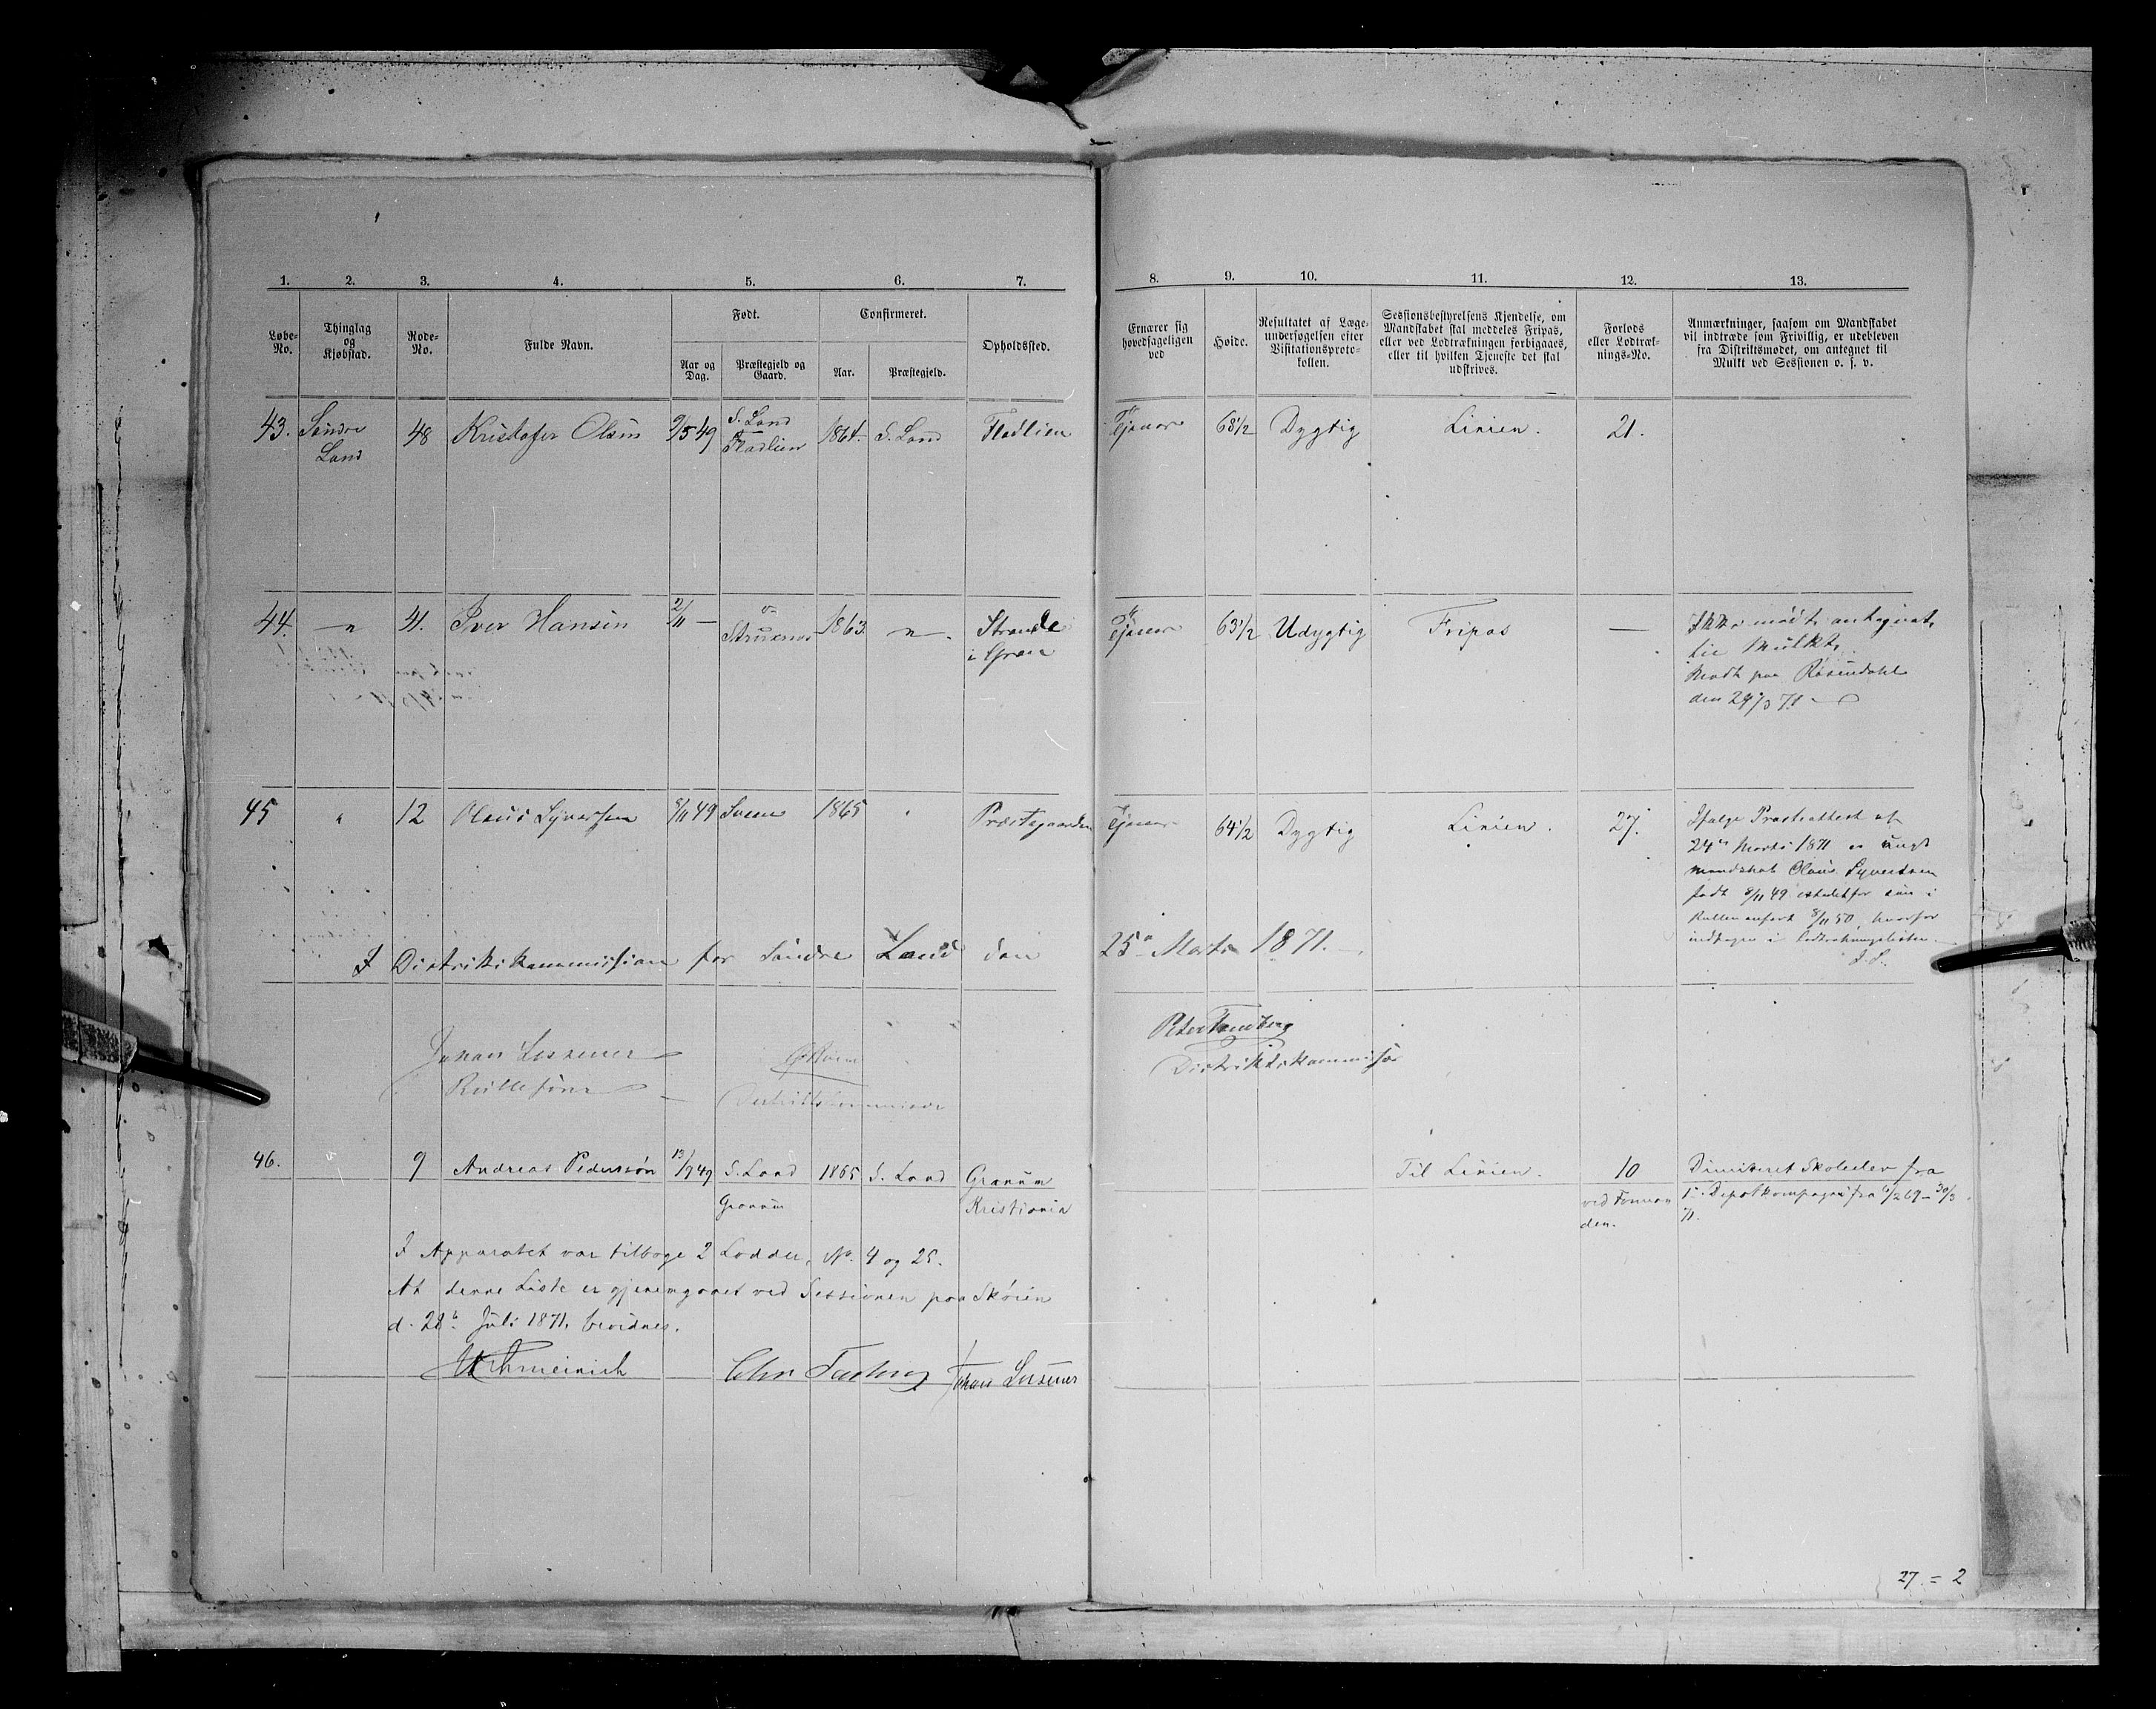 1. 2. 3. 4. 5. 6. 7. 8. 9. 10. 11. 12. 13.
Løbe-No.
Thinglag og Kjøbstad.
Rode-No.
Fulde Navn.
Født.
Aar og Dag.
Præstegjeld og Gaard.
Confirmeret.
Aar.
Præstegjeld.
Opholdssted.
Ernærer sig hovedsageligen ved
Høide.
Resultatet af Lægeundersøgelsen efter Visitationsprotokollen.
Sessionsbestyrelsens Kjendelse, om Mandskabet skal meddeles Fripas, eller ved Lodtrækningen forbigaaes, eller til hvilken Tjeneste det skal udskrives.
Forlods eller Lodtræknings-No.
Anmærkninger, saasom om Mandskabet vil indtræde som Frivillig, er udebleven fra Distriktsmødet, om antegnet til Mulkt ved Sessionen o. s. v.
43. Søndre Land 48 Kristofer Olsen 9/5 49 S. Land Fladlien 1864 S. Land Fladlien Tjener 63 1/2 Dygtig Linien. 21.
44. — " 41. Iver Hansen 2/11 — 1863 — " — Strande i Gran Tjener 63 1/2 Udygtig Fripas —
Ikke mødt, antegnet
til Mulkt,
Mødt paa Rosendahl
den 29/3 71
45 " 12 Olaus Syversen 8/11 49 1865 " Præstegaarden Tjener 64 1/2 Dygtig Linien. 27.
Ifølge Præsteattest af
24de Marts 1871 er ungt
Mandskab Olaus Syversen
født 8/11 49 istedetfor som i
Rullen anført 8/11 50, hvorfor
indtagen i Lodtrækningslisten.
I Distriktskommission for Søndre Land den 25de Marts 1871.
Johan
Distriktskommissær
Distriktskommissær
46. 9 Andreas Pedersøn 13/9 49 S. Land Granum 1865 S. Land Granum Kristiania Til Linien. 10 ved
Dimitteret Skoleelev fra
1ste Depotkompagni fra 1/2 69 – 30/3
71.
I Apparatet var tilbage 2 Lodder, No. 4 og 25.
At denne Liste er gjennemgaaet ved Sessionen paa Skøien
d. 28de Juli 1871, bevidnes.
Chr
Johan
27. = 2